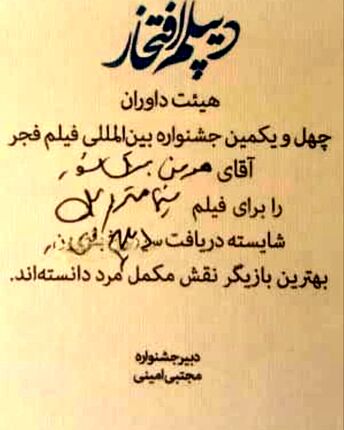 دیپلم افتخار
هیئت داوران
چهل و یکمین جشنواره بین‌المللی فیلم فجر
آقای
را برای فیلم سینما متروپل
شایسته دریافت
بهترین بازیگر نقش مکمل مرد دانسته‌اند.
دبیر جشنواره
مجتبی امینی